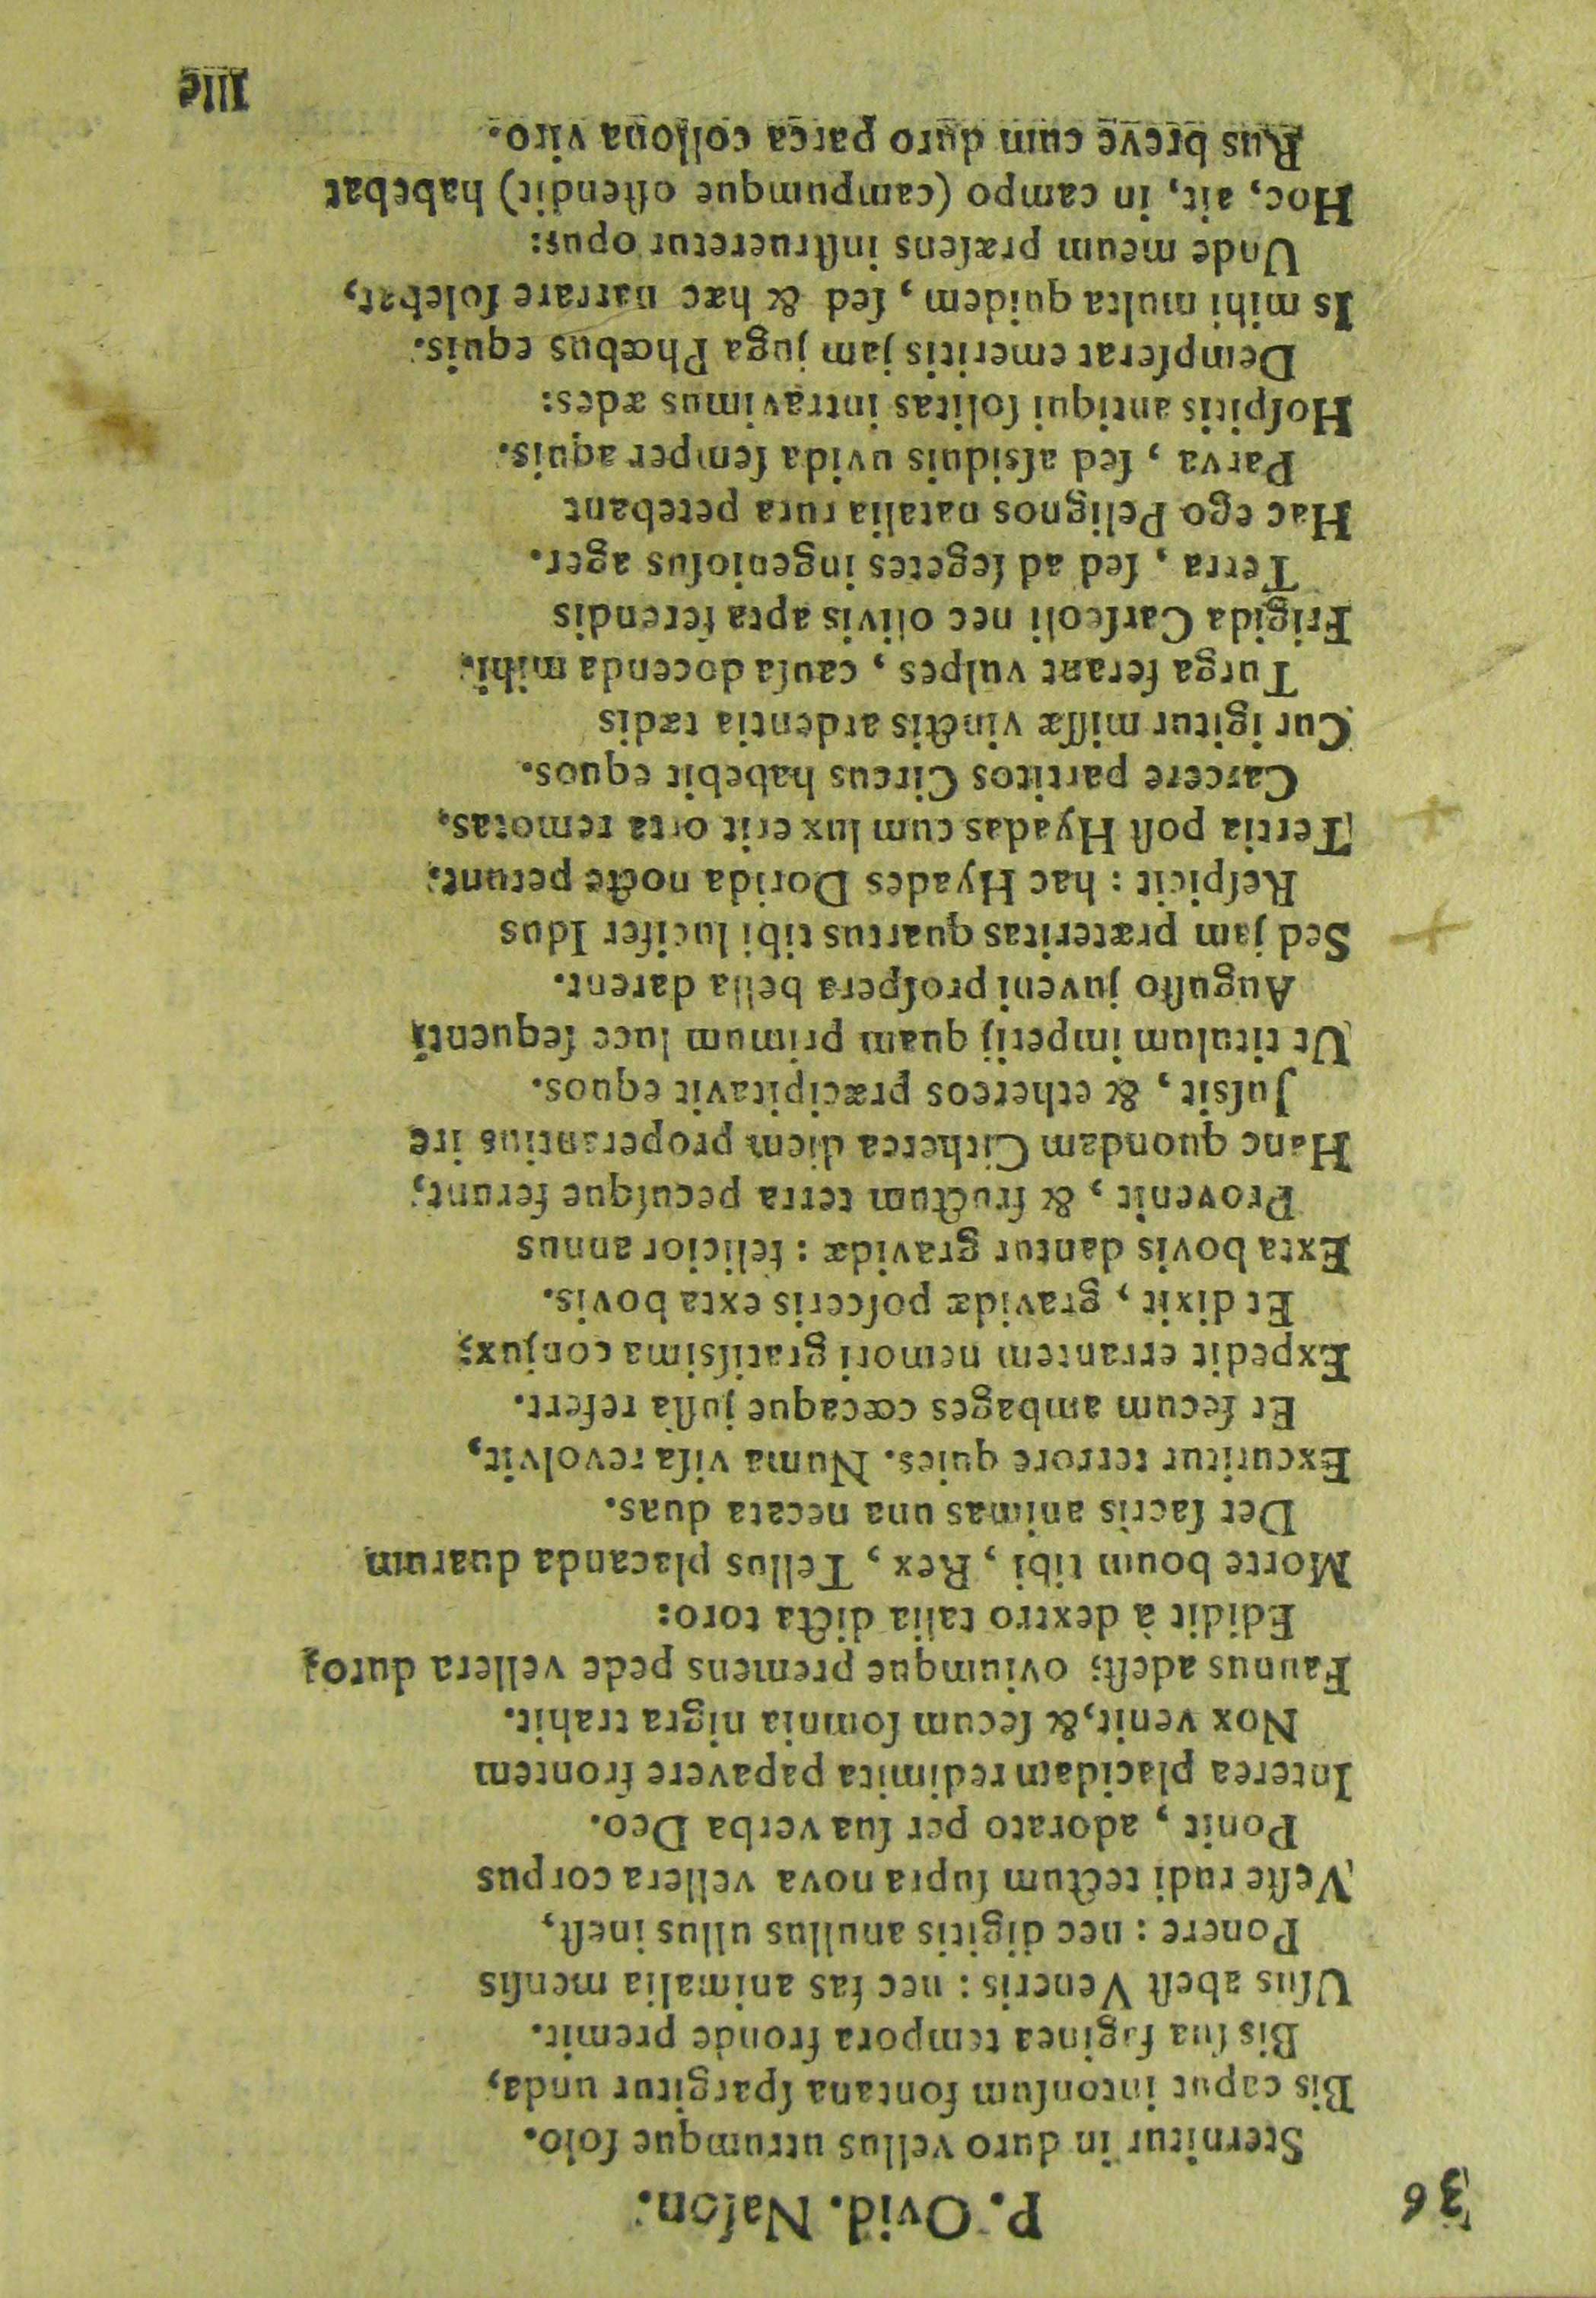 36 P. Ovid. Naſon.
Sternitur in duro vellus utrumque ſolo.
Bis caput intonſum fontana ſpargitur unda,
Bis ſua faginea tempora fronde premit.
Uſus abeſt Veneris : nec fas animalia menſis
Ponere : nec digitis anullus ullus ineſt,
Veſte rudi tectum ſupra nova vellera corpus
Ponit , adorato per ſua verba Deo.
Interea placidam redimita papavere frontem
Nox venit,& ſecum ſomnia nigra trahit.
Faunus adeſt; oviumque premens pede vellera duro;
Edidit à dextro talia dicta toro:
Morte boum tibi , Rex , Tellus placanda duarum
Det ſacris animas una necata duas.
Excutitur terrore quies. Numa viſa revolvit,
Et ſecum ambages cœcaque juſſa refert.
Expedit errantem nemori gratiſsima conjux;
Et dixit , gravidæ poſceris exta bovis.
Exta bovis dantur gravidæ : felicior annus
Provenit , & fructum terra pecuſque ferunt,
Hanc quondam Citherea diem properantius ire
Juſsit , & ethereos præcipitavit equos.
Ut titulum imperij quam primum luce ſequenti
Auguſto juveni proſpera bella darent.
Sed jam præteritas quartus tibi lucifer Idus
Reſpicit : hac Hyades Dorida nocte petunt.
Tertia poſt Hyadas cum lux erit orta remotas,
Carcere partitos Circus habebit equos.
Cur igitur miſſæ vinctis ardentia tædis
Turga ferant vulpes , cauſa docenda mihi.
Frigida Carſeoli nec olivis apta ferendis
Terra , ſed ad ſegetes ingenioſus ager.
Hac ego Pelignos natalia rura petebant
Parva , ſed aſsiduis uvida ſemper aquis.
Hoſpitis antiqui ſolitas intravimus ædes:
Dempſerat emeritis jam juga Phœbus equis.
Is mihi multa quidem , ſed & hæc narrare ſolebat,
Unde meum præſens inſtrueretur opus:
Hoc, ait, in campo (campumque oſtendit) habebat
Rus breve cum duro parca colona viro.
Ille